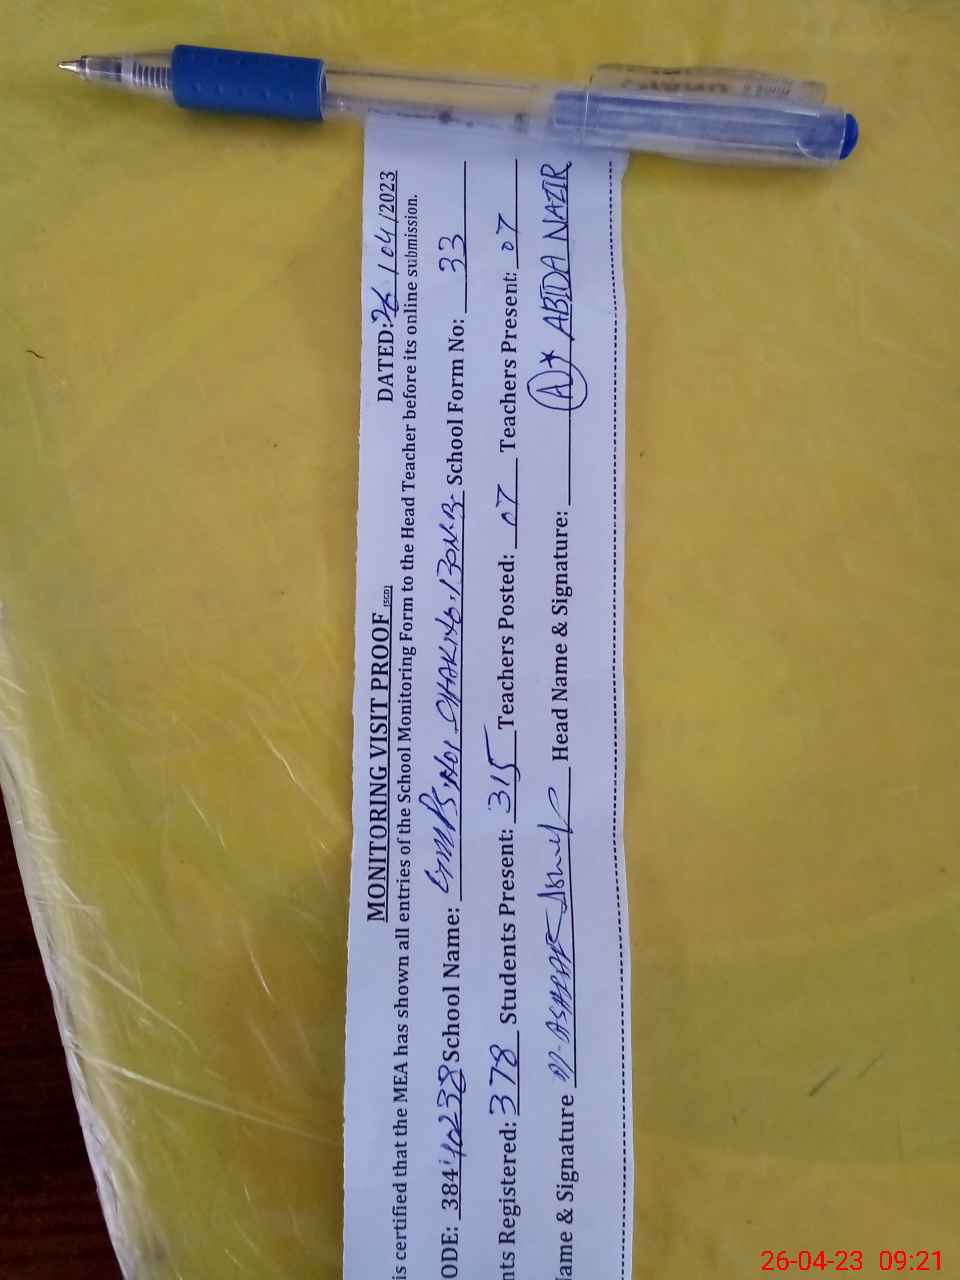 MONITORING VISIT PROOF (SGD) DATED: 26/04/2023
is certified that the MEA has shown all entries of the School Monitoring Form to the Head Teacher before its online submission.
ODE: 38440238 School Name: GMMPS, NO1 CHAK NO.130N.B. School Form No: 33
nts Registered: 378 Students Present: 315 Teachers Posted: 07 Teachers Present: 07
ame & Signature M. ASGHAR Head Name & Signature: ABIDA NAZIR
26-04-23 09:21